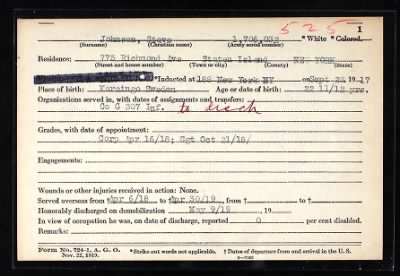 525
1
Johnson, Steve 1,706,032 *White *Colored.
(Surname) (Christian name) (Army serial number)
Residence: 775 Richmond Ave Staten Island NEW YORK
(Street and house number) (Town or city) (County) (State)
*Inducted at 188 New York NY on Sept 22 1917
Place of birth: Sweden Age or date of birth: 22 11/12 yrs.
Organizations served in, with dates of assignments and transfers:
Co G 307 Inf. to disch
Grades, with date of appointment:
Corp Apr 16/18; Sgt Oct 21/18/
Engagements:
Wounds or other injuries received in action: None.
Served overseas from †Apr 6/18 to †Apr 30/19, from † to †
Honorably discharged on demobilization May 9/19 , 19
In view of occupation he was, on date of discharge, reported 0 per cent disabled.
Remarks:
Form No. 724-1, A. G. O. *Strike out words not applicable. † Dates of departure from and arrival in the U. S.
Nov. 22, 1919.